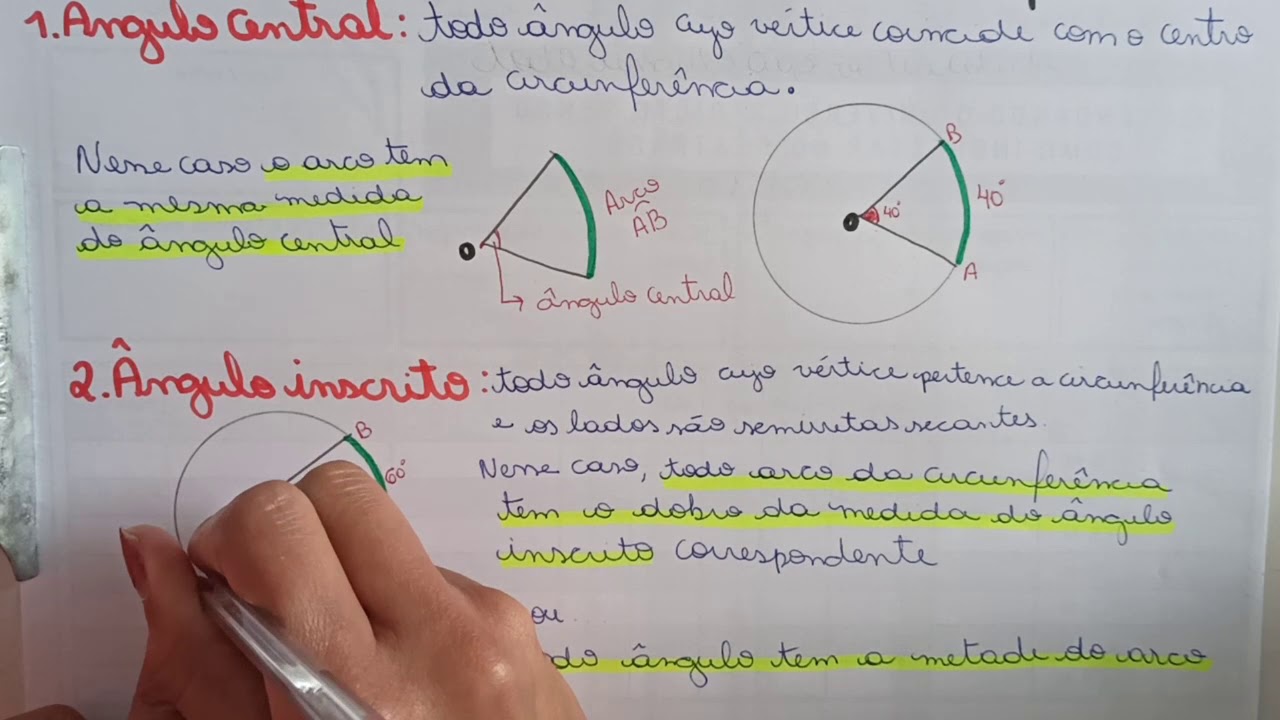 1. Ângulo Central: todo ângulo cujo vértice coincide com o centro
da circunferência.
Nesse caso o arco tem
a mesma medida
do ângulo central
O
Arco
AB
ângulo central
B
O
40°
40°
A
2. Ângulo inscrito: todo ângulo cujo vértice pertence a circunferência
e os lados são semirretas secantes.
B
60°
Nesse caso, todo arco da circunferência
tem o dobro da medida do ângulo
inscrito correspondente
ou
ângulo tem a metade do arco